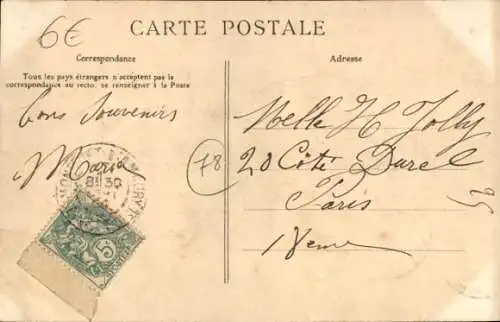 6€
CARTE POSTALE
Correspondance
Adresse
Tous les pays étrangers n'acceptent pas la
correspondance au recto, se renseigner à la Poste
Bons Souvenirs
Maria
Melle H Jolly
78
20 Cité Durel
Paris
18eme
95
8H30
5